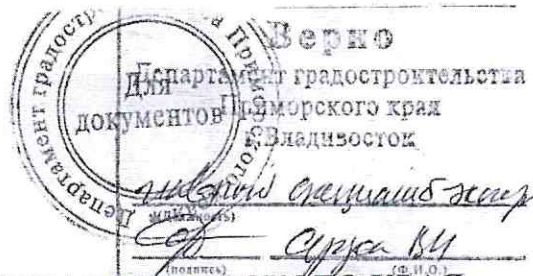 Верно
Департамент градостроктельства
Приморского края
г.Владивосток
Для
документов
Департамент градостр
а Примо
ого
главный специалист экспер
(должность)
(подпись) (Ф.И.О.)